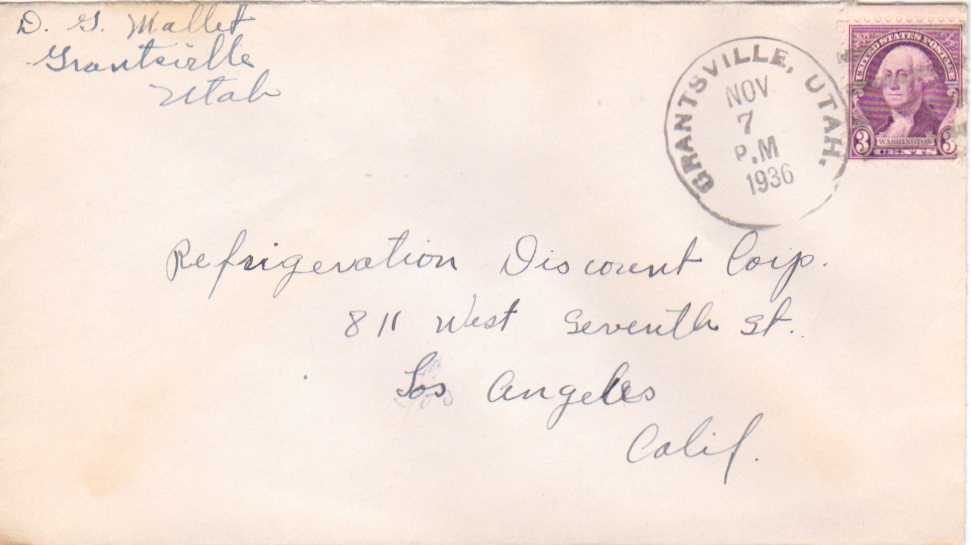 D. G. Mallet
Grantsville
Utah
GRANTSVILLE, UTAH.
NOV
7
P.M
1936
UNITED STATES POSTAGE
3 WASHINGTON 3
CENTS
Refrigeration Discount Corp.
811 West Seventh St.
Los Angeles
Calif.